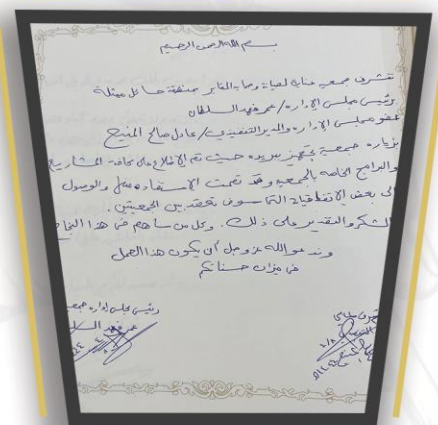 بسم الله الرحمن الرحيم
تتشرف جمعية عناية لصيانة وحماية المقابر بمنطقة حائل ممثلة
برئيس مجلس الإدارة / عمر فهد السلطان
عضو مجلس الإدارة والمدير التنفيذي / عادل صالح المنيع
بزيارة جمعية تجهيز ببريده حيث تم الاطلاع على كافة المشاريع
والبرامج الخاصة بالجمعية وقد تمت الاستفاده والوصول
الى بعض الاتفاقيات التي سوف تعقد بين الجمعيتين .
الشكر والتقدير على ذلك . وكل من ساهم في هذا النجاح
وندعو الله عز وجل أن يكون هذا العمل
في ميزان حسناتكم
رئيس مجلس إداره
عمر فهد